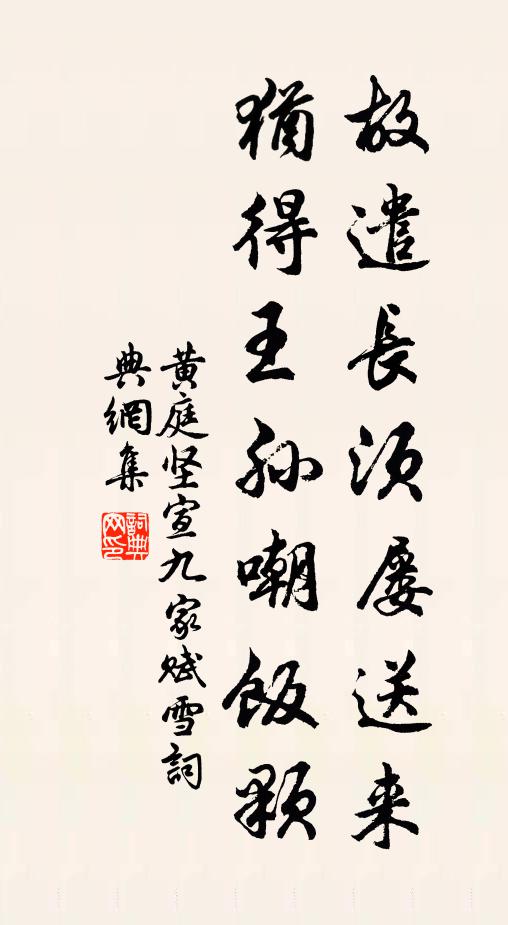 故遣長須屡送来
猶得王孙嘲飯顆
黄庭坚宣九家赋雪詞
典網集
詞典網印